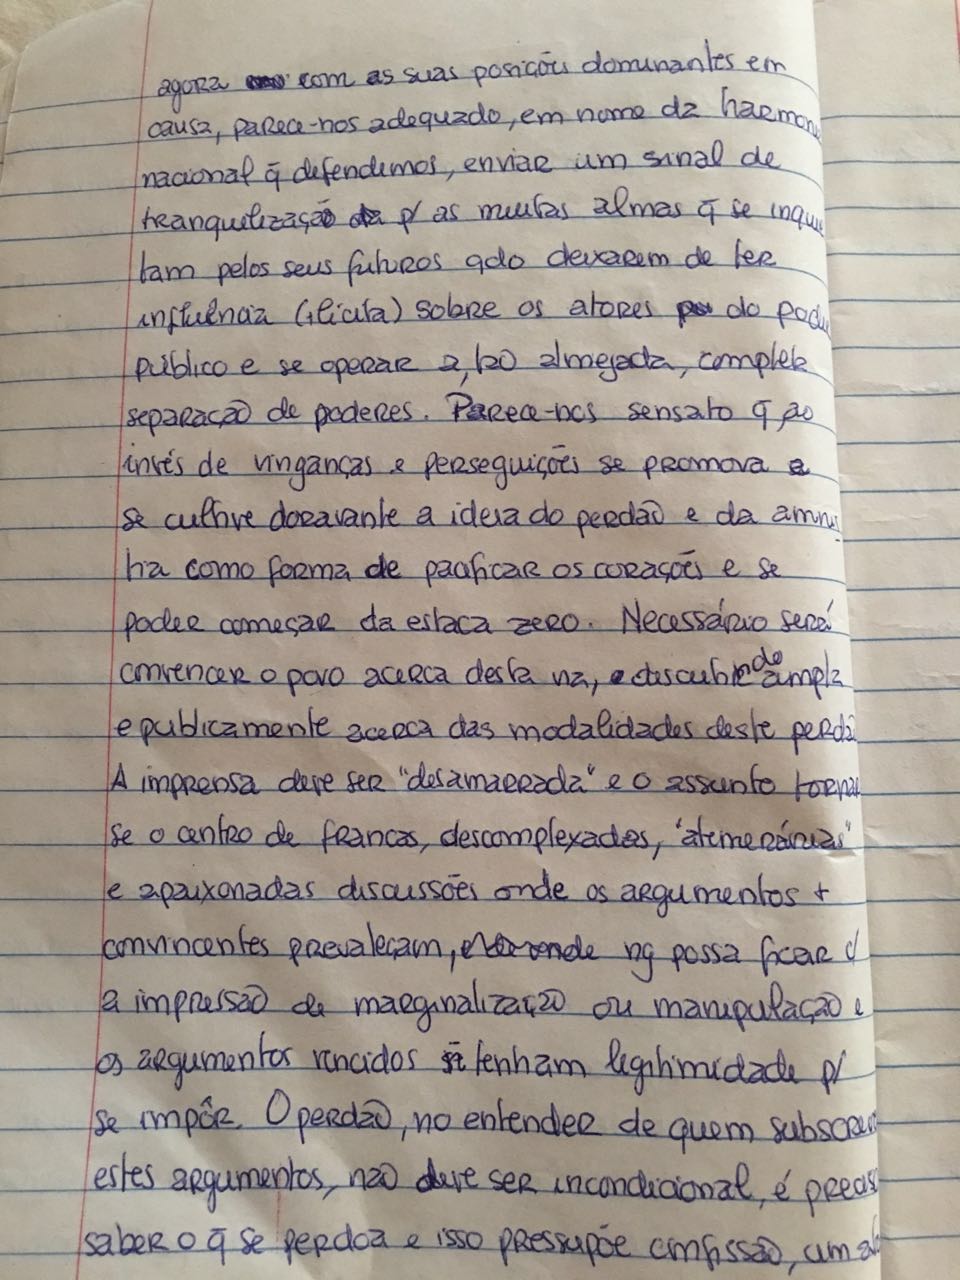 agora com as suas posições dominantes em
causa, parece-nos adequado, em nome da harmon
nacional q̄ defendemos, enviar um sinal de
tranquilização p/ as muitas almas q̄ se inquie
tam pelos seus futuros qdo deixarem de ter
influência (ilícita) sobre os atores do pode
público e se operar a, tão almejada, completa
separação de poderes. Parece-nos sensato q̄ ao
invés de vinganças e perseguições se promova e
se cultive doravante a ideia do perdão e da amnis
tia como forma de pacificar os corações e se
poder começar da estaca zero. Necessário será
convencer o povo acerca desta via, discutindo ampla
e publicamente acerca das modalidades deste perdã
A imprensa deve ser "desamarrada" e o assunto tornar
se o centro de francas, descomplexadas, "atemerárias"
e apaixonadas discussões onde os argumentos +
convincentes prevaleçam, onde ng possa ficar c/
a impressão de marginalização ou manipulação e
os argumentos vencidos ñ tenham legitimidade p/
se impôr. O perdão, no entender de quem subscreve
estes argumentos, não deve ser incondicional, é precis
saber o q̄ se perdoa e isso pressupõe confissão, um